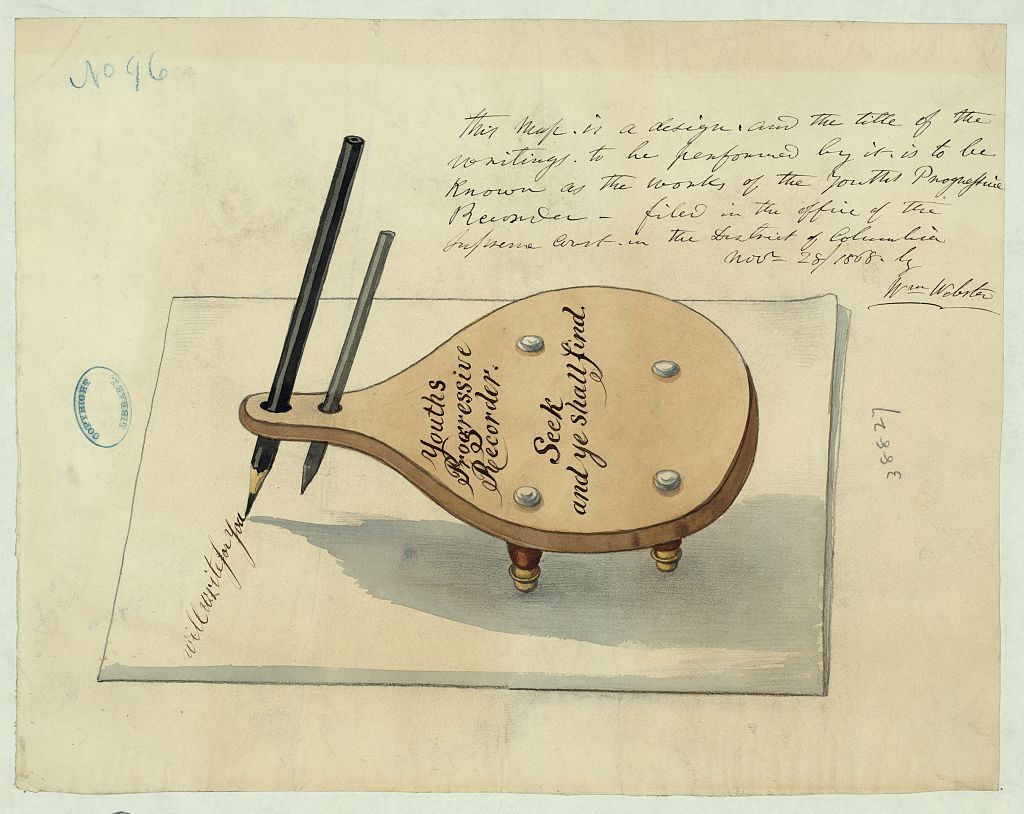 No 96
This Map. is a design. and the title of the
writings. to be performed by it. is to be
Known as the works of the Youths Progressive
Recorder – filed in the office of the
Supreme Court. in the District of Columbia
Novr 28/1868. by
Wm Webster
Youths
Progressive
Recorder.
Seek
and ye shall find.
will write for You
COPYRIGHT
LIBRARY.
38827